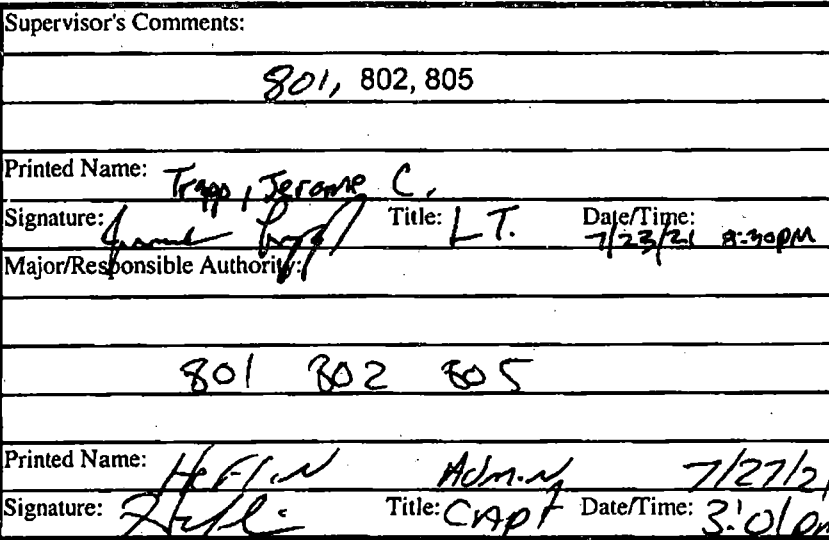 Supervisor's Comments:
801, 802, 805
Printed Name: Trapp, Jerome C.
Signature: Title: LT. Date/Time: 7/23/21 8:30PM
Major/Responsible Authority:
801 802 805
Printed Name: HeFLiN Admin 7/27/21
Signature: Title: CAPT Date/Time: 3:01pm